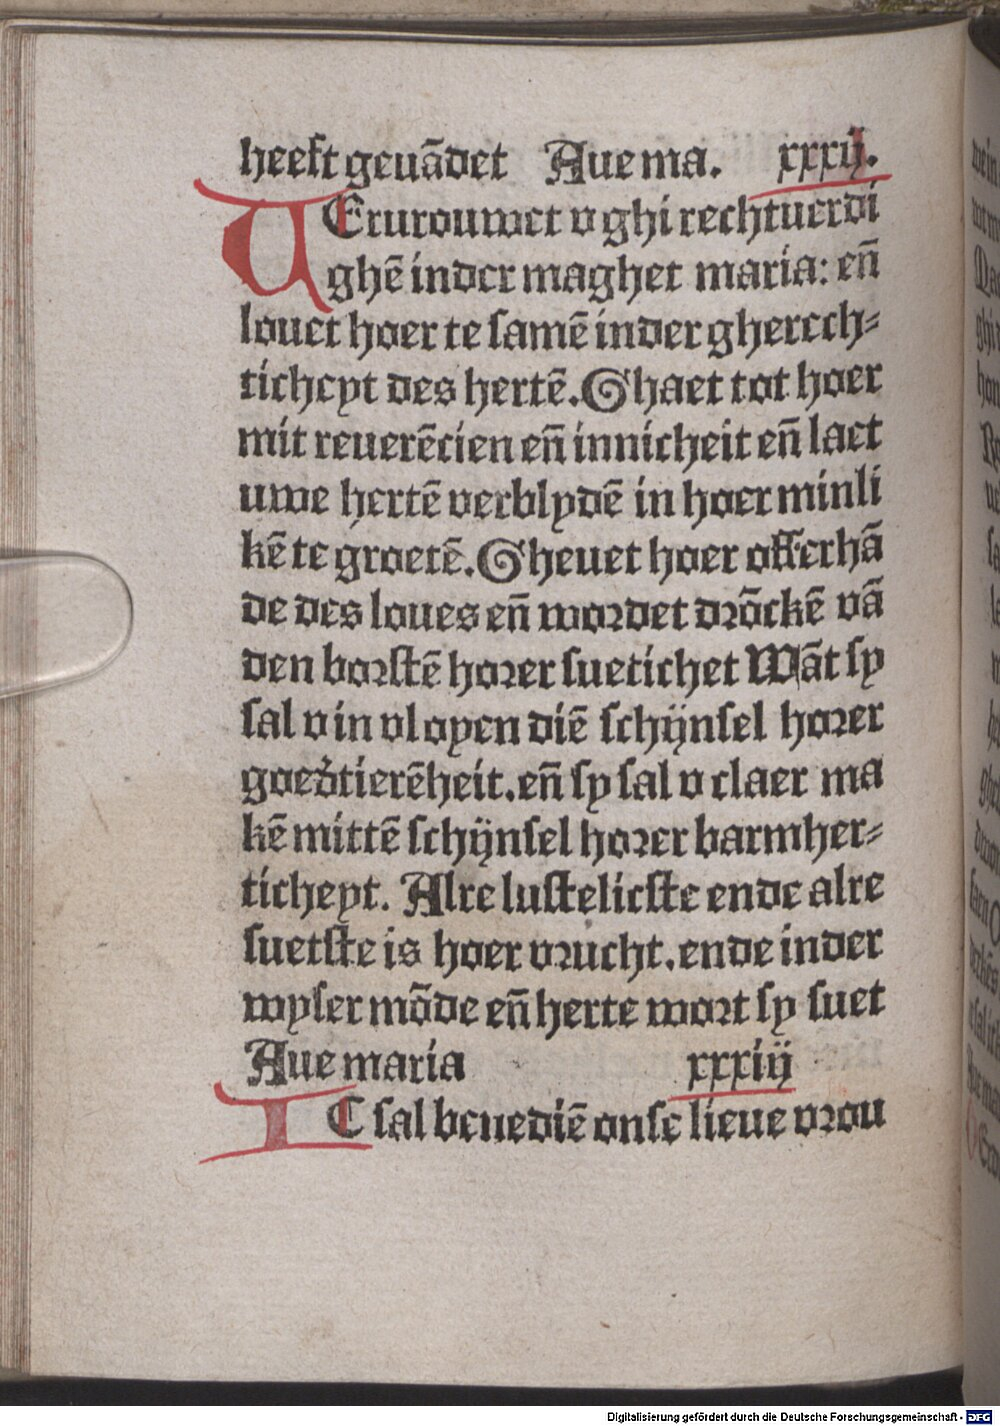 heeft geuādet Aue ma. xxxij.
VErurouwet v ghi rechtuerdi
ghē in der maghet maria: en̄
louet hoer te samē in der gherech-
ticheyt des hertē. Ghaet tot hoer
mit reuerēcien en̄ innicheit en̄ laet
uwe hertē verblydē in hoer minli
kē te groetē. Gheuet hoer offerhā
de des loues en̄ wordet drōckē vā
den borstē horer suetichet Wāt sy
sal v in vloyen diē schijnsel horer
goedertierēheit. en̄ sy sal v claer ma
kē mittē schijnsel horer barmher-
ticheyt. Alre lustelicste ende alre
suetste is hoer vrucht. ende in der
wyser mōde en̄ herte wort sy suet
Aue maria xxxiij
IC sal benediē onse lieue vrou
Digitalisierung gefördert durch die Deutsche Forschungsgemeinschaft - DFG